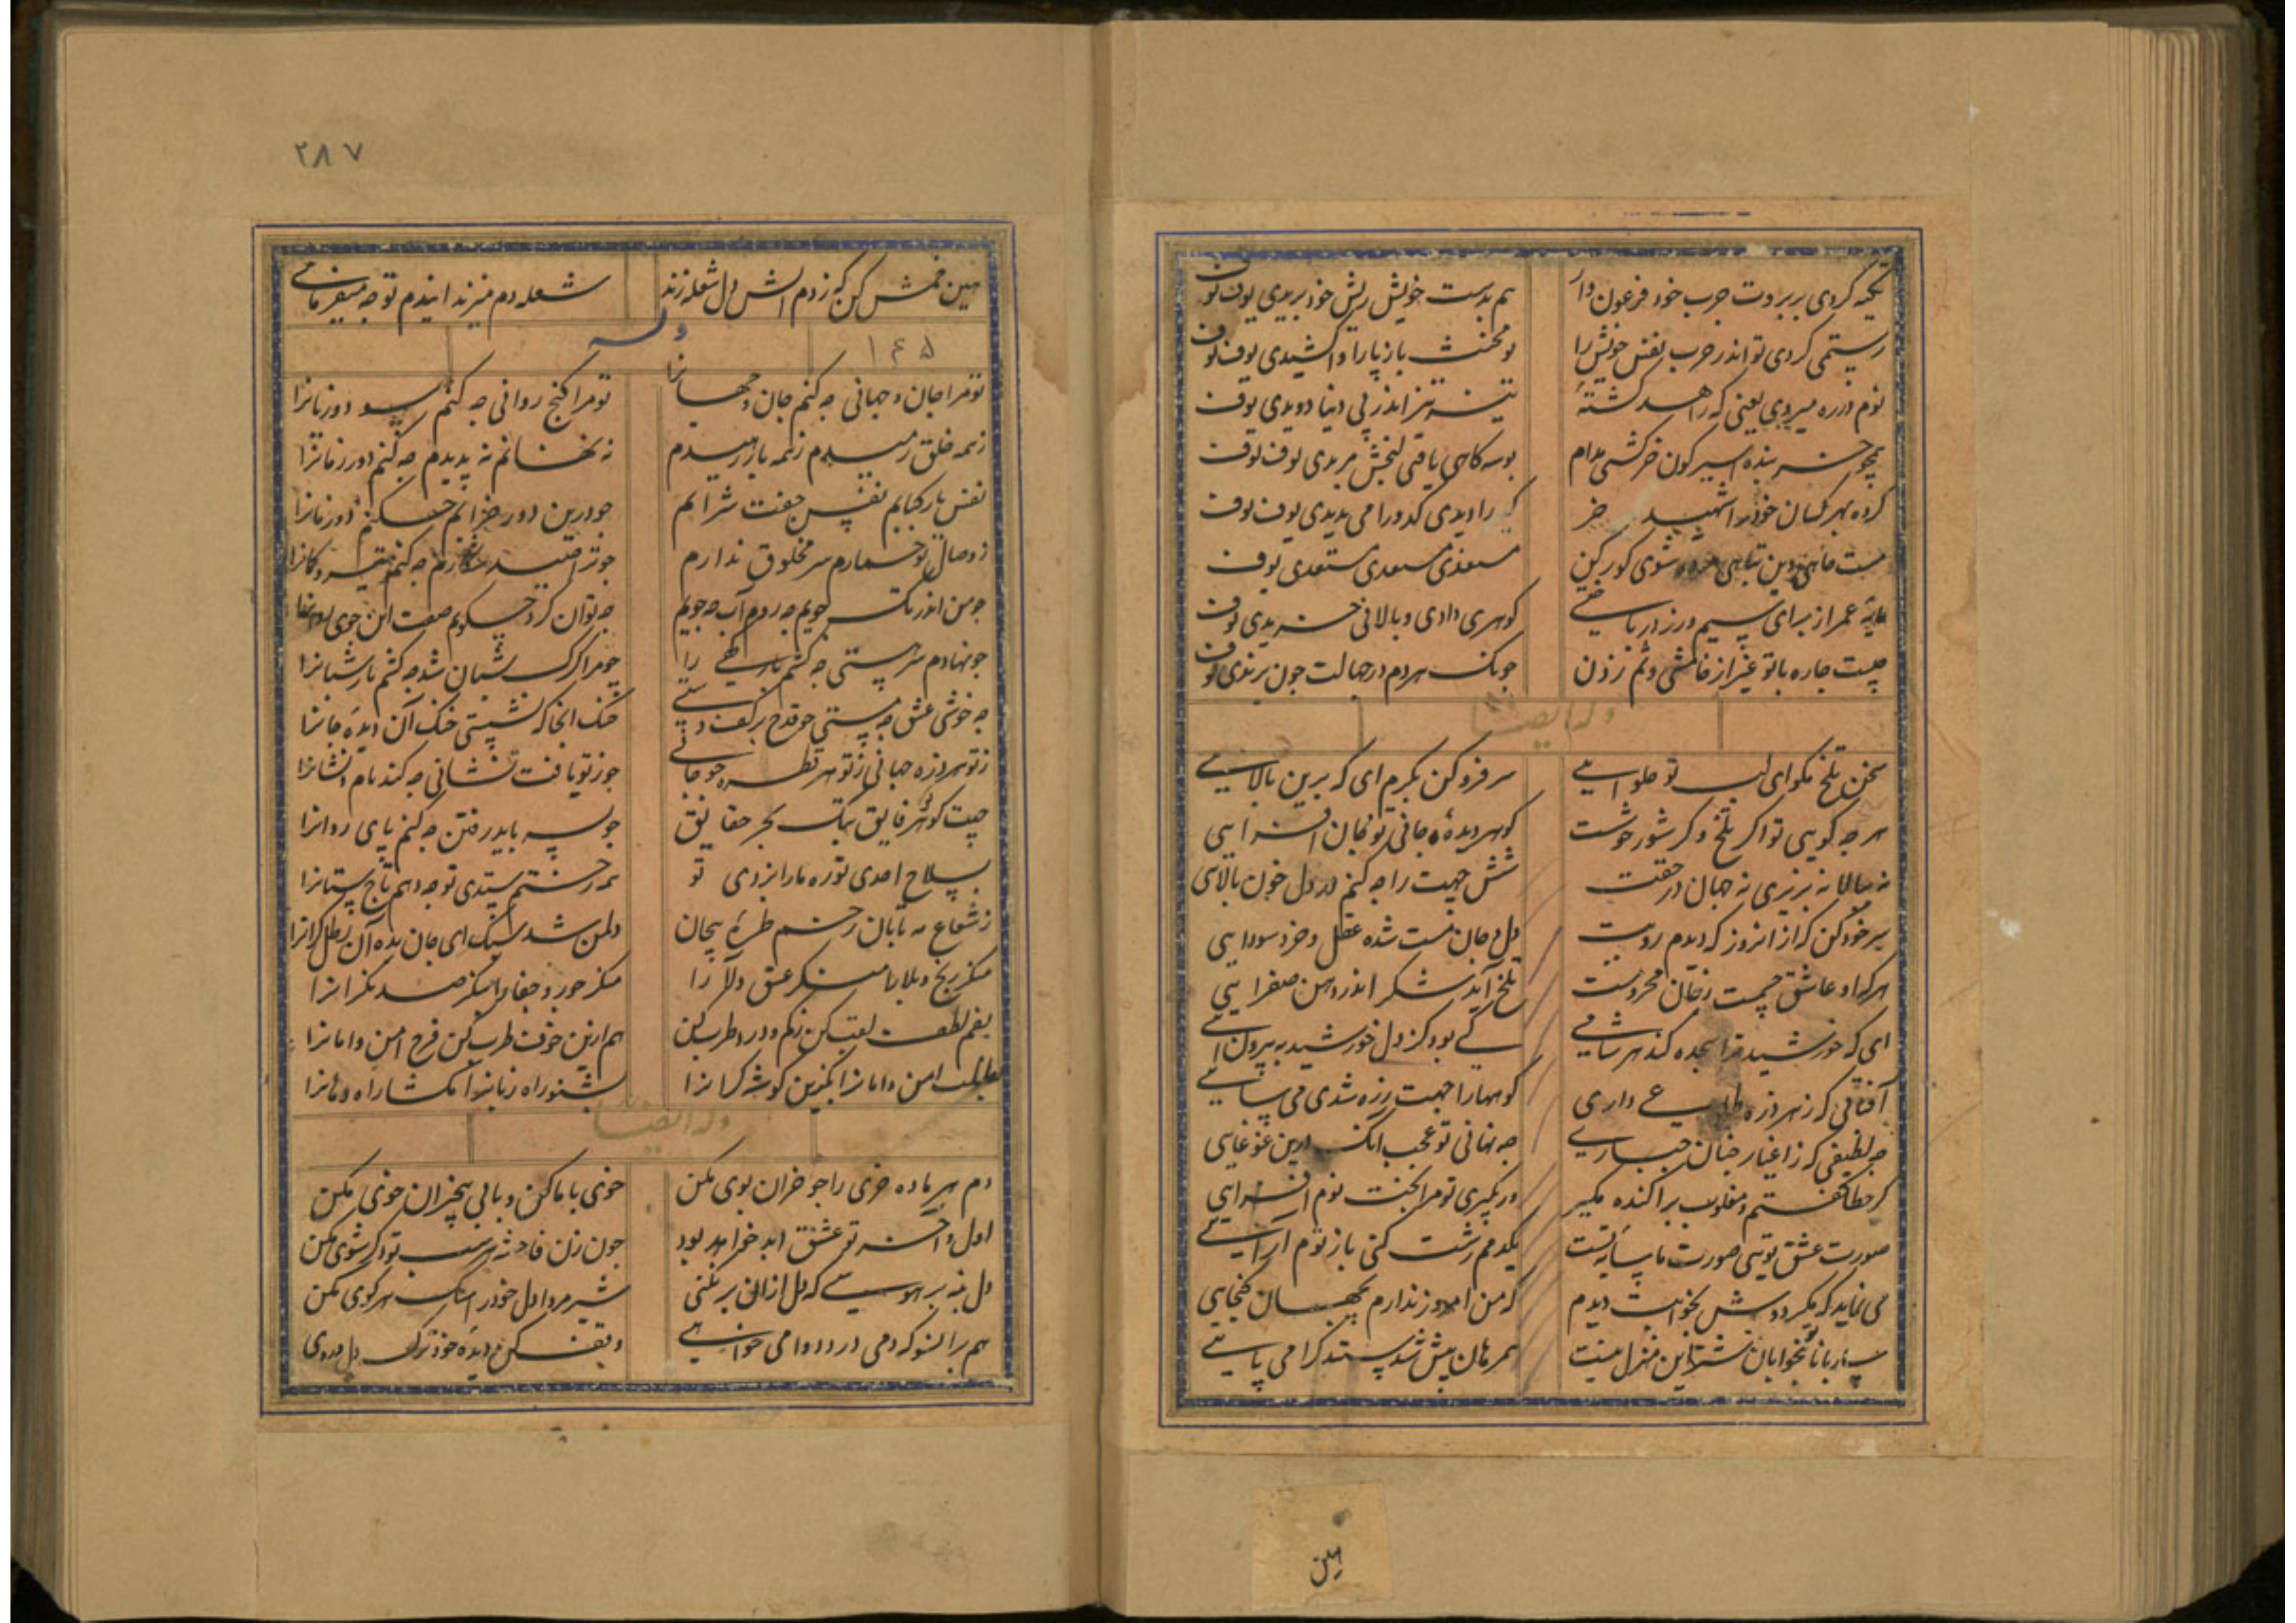 تکیه کردی بر بروت چرب خود فرعون وار
هم بدست خویش ریش خود بریدی توف توف
رستمی کردی تو اندر حرب نفس خویش را
مخنث باز پا را واکشیدی توف توف
توم در ره میروی یعنی که زاهد کشتهٔ
تیز اندر پی دنیا دویدی توف
همچو بنده اسیر کون خر کشتی مدام
بوسه کاهی یافتی توف توف
کرده بهر کسان خود را شهید خر
را دیدی کدو را می ندیدی توف توف
کور کن
مستعدی مستعدی مستعدی توف
مایهٔ عمر از برای سیم و زر در باختی
کوهری دادی و بالانی خریدی توف
چیست چاره با تو غیر از خامشی و تم زدن
جونک هر دم در جهالت جون بریدی توف
وله ایضا
سخن تلخ مکو ای لب تو حلوایی
سر فرو کن بکرم ای که برین بالایی
هر چه کویی تو اکر تلخ و کر شور خوشست
کوهر دیدهٔ جانی تو و جان افزایی
نه ببالا نه بزیری نه جهان در حقت
شش جهت را چه کنم در دل خون بالایی
سر خود کن که از انروز که دیدم رویت
دل و جان مست شده عقل و خرد سودایی
هر که او عاشق جسمست ز جان محرومست
تلخ آید شکر اندر دهن صفرایی
ای که خورشید ترا سجده کند هر شامی
کی بود کز دل خورشید به بیرون آیی
آفتابی که ز هر ذره طلوعی داری
کوهها را جهت ذره شدن می سایی
چه لطیفی که ز اغیار چنان جباری
چه نهانی تو عجب انک درین غوغایی
کر خطا کفتم و مقلوب براکنده مکیر
ور بکیری تو مرا بخت نوم افزایی
صورت عشق تویی صورت ما سایهٔ تست
یکدمم زشت کنی باز توم آرایی
می نماید که مکر دوش بخوابت دیدم
که من امروز ندارم بجهان کنجایی
ساربانا بمخوابان شتر این منزل نیست
همرهان پیش شدستند کرا می پایی
هین
۲۸۷
هین خمش کن که ز دم آتش دل شعله زند
شعله دم میزند ایندم تو چه میفرمایی
وله
۱۶۵
تو مرا جان و جهانی چه کنم جان و جهانرا
تو مرا کنج روانی چه کنم سود و زیانرا
ز همه خلق رمیدم ز همه باز رهیدم
نه نهانم نه پدیدم چه کنم دور زمانرا
نفسی یار کبابم نفسی جفت شرابم
جو درین دور خرابم چه کنم دور زمانرا
ز وصال تو خمارم سر مخلوق ندارم
جو ترا صید و شکارم چه کنم تیر و کمانرا
جو من اندر تک جویم چه روم آب چه جویم
چه توان کرد چه کویم صفت این جوی روانرا
جو نهادم سر هستی چه کشم بار کهی را
جو مرا کرک شبان شد چه کشم بار شبانرا
چه خوشی عشق چه مستی جو قدح بر کف دستی
خنک انجا که نشستی خنک آن دیده جانرا
ز تو هر ذره جهانی ز تو هر قطره جو جانی
جو ز تو یافت نشانی چه کند نام و نشانرا
جهت کوهر فایق بتک بحر حقایق
جو بسر باید رفتن چه کنم پای روانرا
بسلاح احدی تو ره ما را بزدی تو
همه رختم ستدی تو چه دهم باج ستانرا
ز شعاع مه تابان ز خم طرهٔ پیچان
دل من شد سبک ای جان بده آن رطل کرانرا
منکر رنج و بلا را منکر عشق و ولا را
منکر جور و جفا را منکر صد نکرانرا
غم را لطف لقب کن ز غم و درد طرب کن
هم ازین خوف طرب کن فرح امن و امانرا
بطلب امن و امانرا بکزین کوشه کرانرا
بشنو راه زبانرا مکشا راه دهانرا
وله ایضا
دم هر ماده خری را جو خران بوی مکن
خوی با ما کن و با بی خبران خوی مکن
اول و آخر تو عشق ابد خواهد بود
جون زن فاحشه هر شب تو دکر شوی مکن
دل بنه بر هوسی که دل ازان بر نکنی
شیر مردا دل خود را سک هر کوی مکن
هم بر انسو که دمی درد و دوا می خواهی
وقف کن دیدهٔ خود